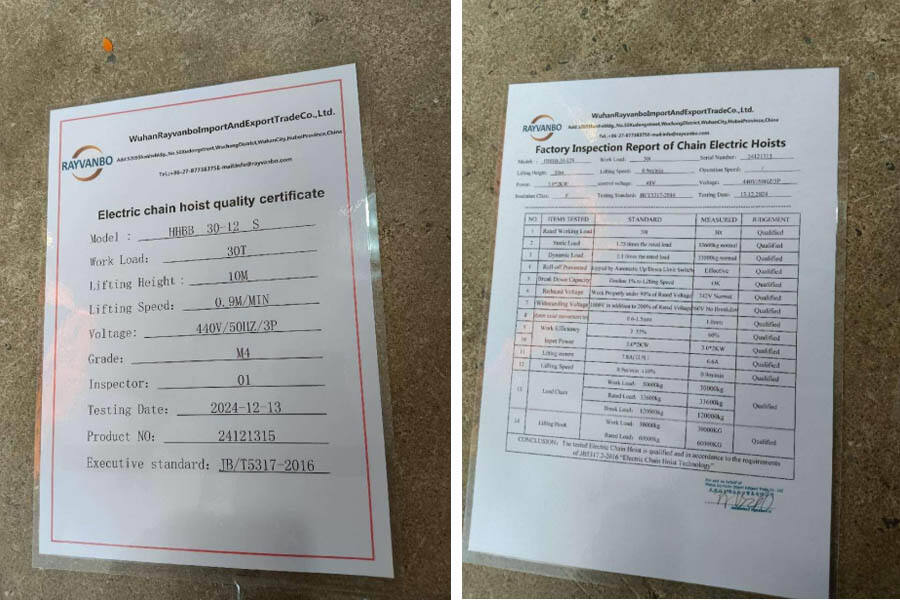 WuhanRayvanboImportAndExportTradeCo.,Ltd.
RAYVANBO
Electric chain hoist quality certificate
Model : HHBB 30-12 S
Work Load: 30T
Lifting Height : 10M
Lifting Speed: 0.9M/MIN
Voltage: 440V/50HZ/3P
Grade: M4
Inspector: 01
Testing Date: 2024-12-13
Product NO: 24121315
Executive standard: JB/T5317-2016
WuhanRayvanboImportAndExportTradeCo.,Ltd.
RAYVANBO
Factory Inspection Report of Chain Electric Hoists
Work Load: 30t Serial Number: 24121315
Lifting Height: Lifting Speed: 0.9m/min Operation Speed: /
Power: 3.0*2KW control voltage: 48V Voltage: 440V/50HZ/3P
Insulation Class: F Testing Standard: JB/T5317-2016 Testing Date: 13.12.2024
NO ITEMS TESTED STANDARD MEASURED JUDGEMENT
1 Rated Working Load 30t 30t Qualified
2 Static Load 1.25 times the rated load normal Qualified
3 Dynamic Load 1.1 times the rated load 33000kg normal Qualified
4 Roll-off Prevented by Automatic Up/Down Limit Switch Effective Qualified
5 Break Down Capacity 1% to Lifting Speed OK Qualified
6 Reduced Voltage Work Properly under 90% of Rated Voltage 342V Normal Qualified
7 Withstanding Voltage in addition to 200% of Rated Voltage No Breakdown Qualified
8 Qualified
9 Work Efficiency 60% Qualified
10 Input Power 3.0*2KW 3.0*2KW Qualified
11 6.6A Qualified
12 Lifting Speed 0.9m/min ±10% 0.9m/min Qualified
13 Load Chain Work Load: Qualified
Rated Load: 33600kg 33600kg
Break Load: 120000kg 120000kg
14 Lifting Hook Work Load: 30000kg 30000KG Qualified
Rated Load: 60000kg 60000KG
CONCLUSION: The tested Electric Chain Hoist is qualified and in accordance to the requirements
of JB5317.2-2016 "Electric Chain Hoist Technology"